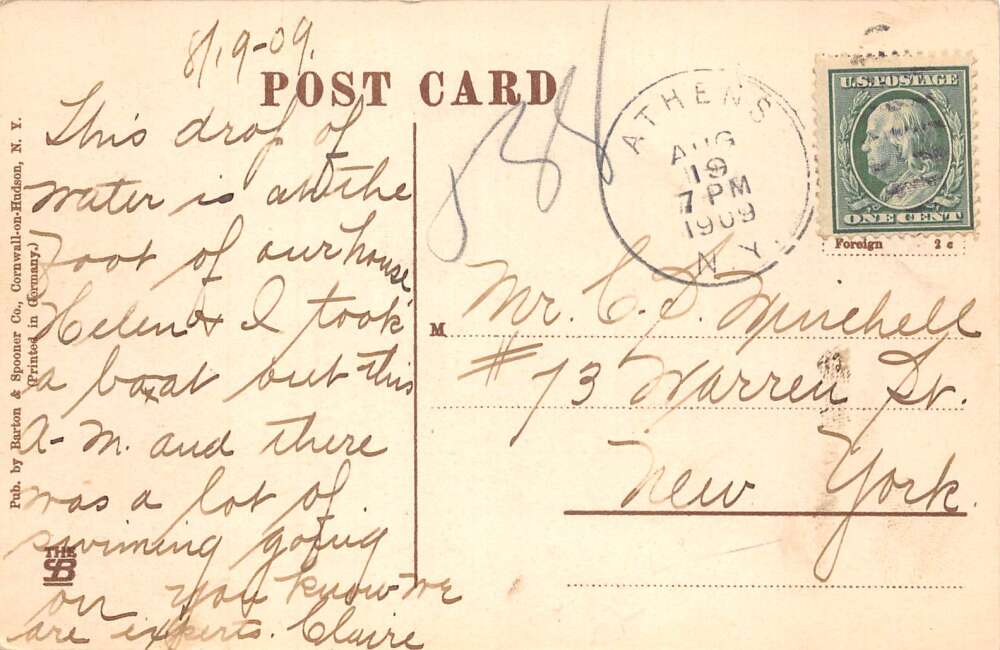 8/19-09.
POST CARD
This drop of
water is at the
foot of our house
Helen & I took
a boat out this
A-M. and there
was a lot of
swiming going
on you know we
are experts. Claire
Pub. by Barton & Spooner Co., Cornwall-on-Hudson, N. Y.
(Printed in Germany.)
THE
SB
ATHENS
AUG
19
7 PM
1909
N Y
U.S. POSTAGE
ONE CENT
Foreign 2 c
M
Mr. C. S. Minchell
# 73 Warren St.
New York.